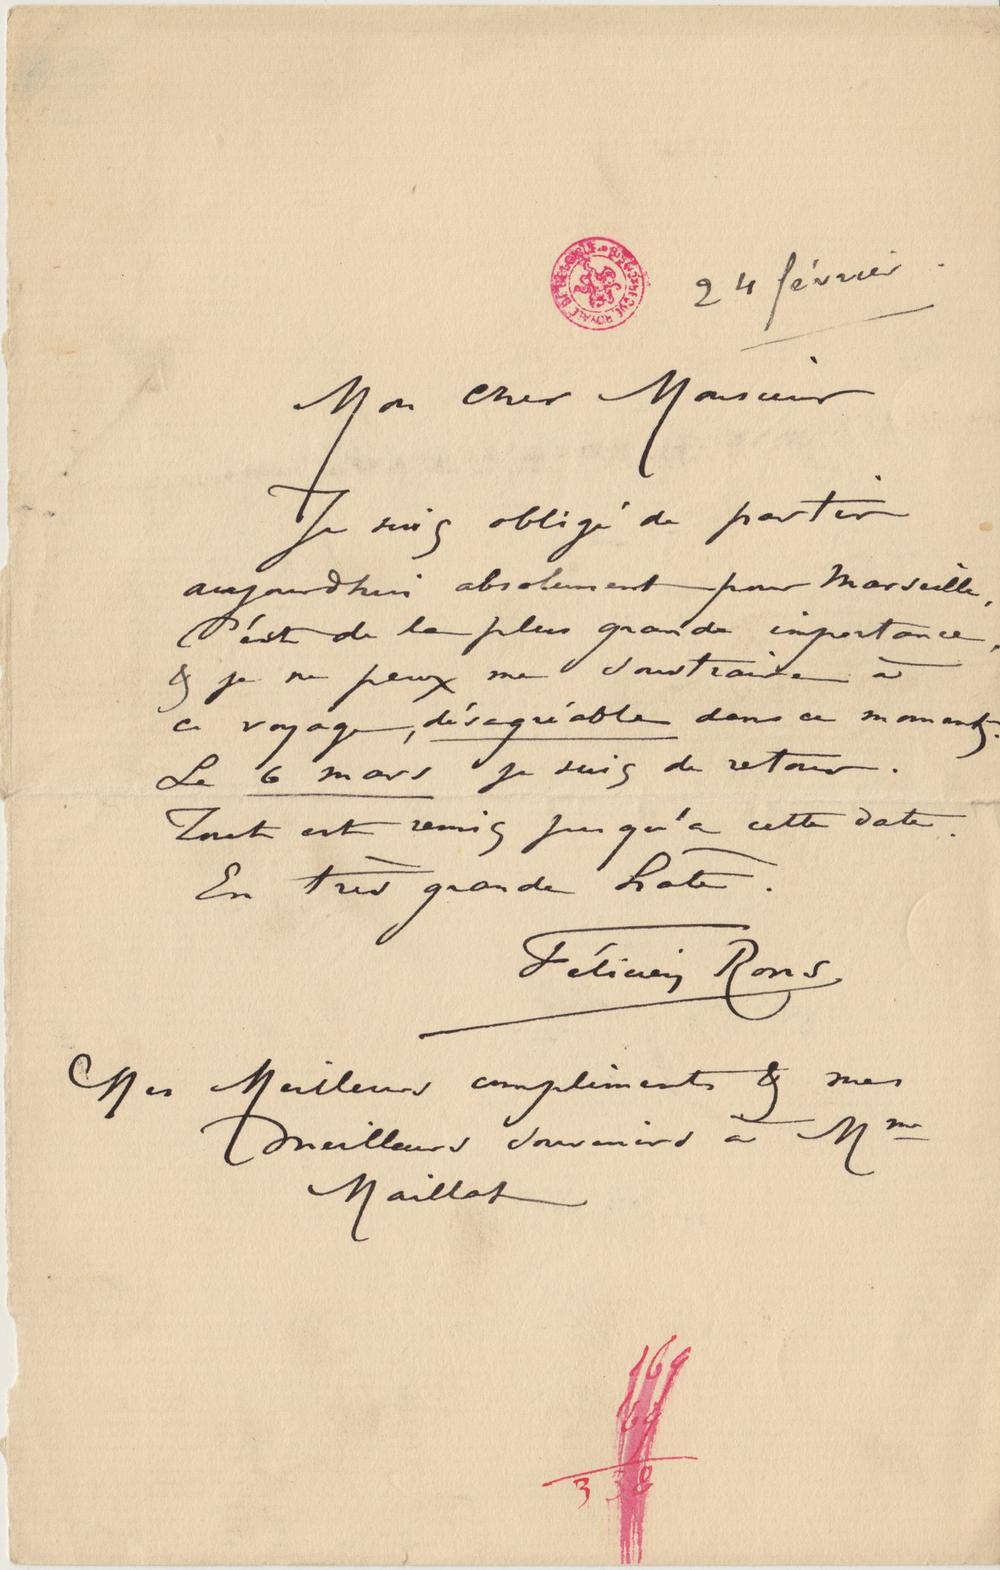 BIBLIOTHÈQUE ROYALE DE BELGIQUE
24 février.
Mon cher Monsieur
Je suis obligé de partir
aujourdhui absolument pour Marseille,
C'est de la plus grande importance,
& je ne peux me soustraire à
ce voyage, désagréable dans ce moment.
Le 6 mars je suis de retour.
Tout est remis jusqu'à cette date.
En très grande hâte.
Félicien Rops
Mes Meilleurs compliments & mes
meilleurs souvenirs à Mme
Maillat
169
169
338